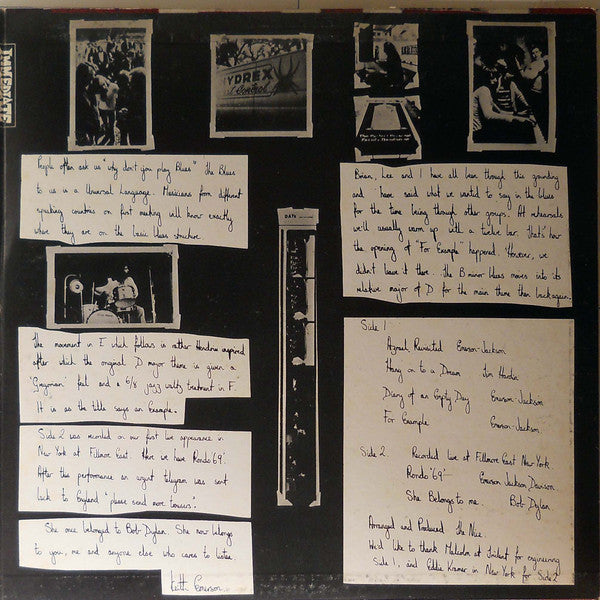 IMMEDIATE
YDREX
Control
People often ask us "why don't you play Blues" The Blues
to us is a Universal Language. Musicians from different
speaking countries on first meeting will know exactly
where they are on the basic blues structure.
Brian, Lee and I have all been through this grounding
and have said what we wanted to say in the blues
for the time being through other groups. At rehearsals
we'll usually warm up with a twelve bar. that's how
the opening of "For Example" happened. However, we
didn't leave it there. the B minor blues moves into its
relative major of D for the main theme then back again.
DATE
The movement in E which follows is rather Hendrix inspired
after which the original D major theme is given a
feel and a 6/8 jazz waltz treatment in F.
It is as the title says an Example.
Side 2 was recorded on our first live appearance in
New York at Fillmore East. Here we have Rondo '69'.
After this performance an urgent telegram was sent
back to England "please send more trousers."
She once belonged to Bob Dylan. She now belongs
to you, me and anyone else who cares to listen.
Keith Emerson.
Side 1
Azrael Revisited Emerson-Jackson
Hang on to a Dream Tim Hardin
Diary of an Empty Day Emerson-Jackson
For Example Emerson-Jackson.
Side 2. Recorded live at Fillmore East New York
Rondo '69' Emerson Jackson Davison.
She Belongs to me. Bob Dylan
Arranged and Produced The Nice.
We'd like to thank Malcolm at Trident for engineering
Side 1, and Eddie Kramer in New York for Side 2